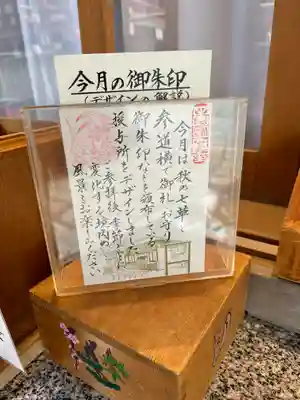 今月の御朱印
(デザインの解説)
今月は秋の七草と
参道横で御札、お守り
御朱印などを頒布してる
授与所をデザインしました
ご参拝後季節に
変化する境内の
風景をお楽しみください